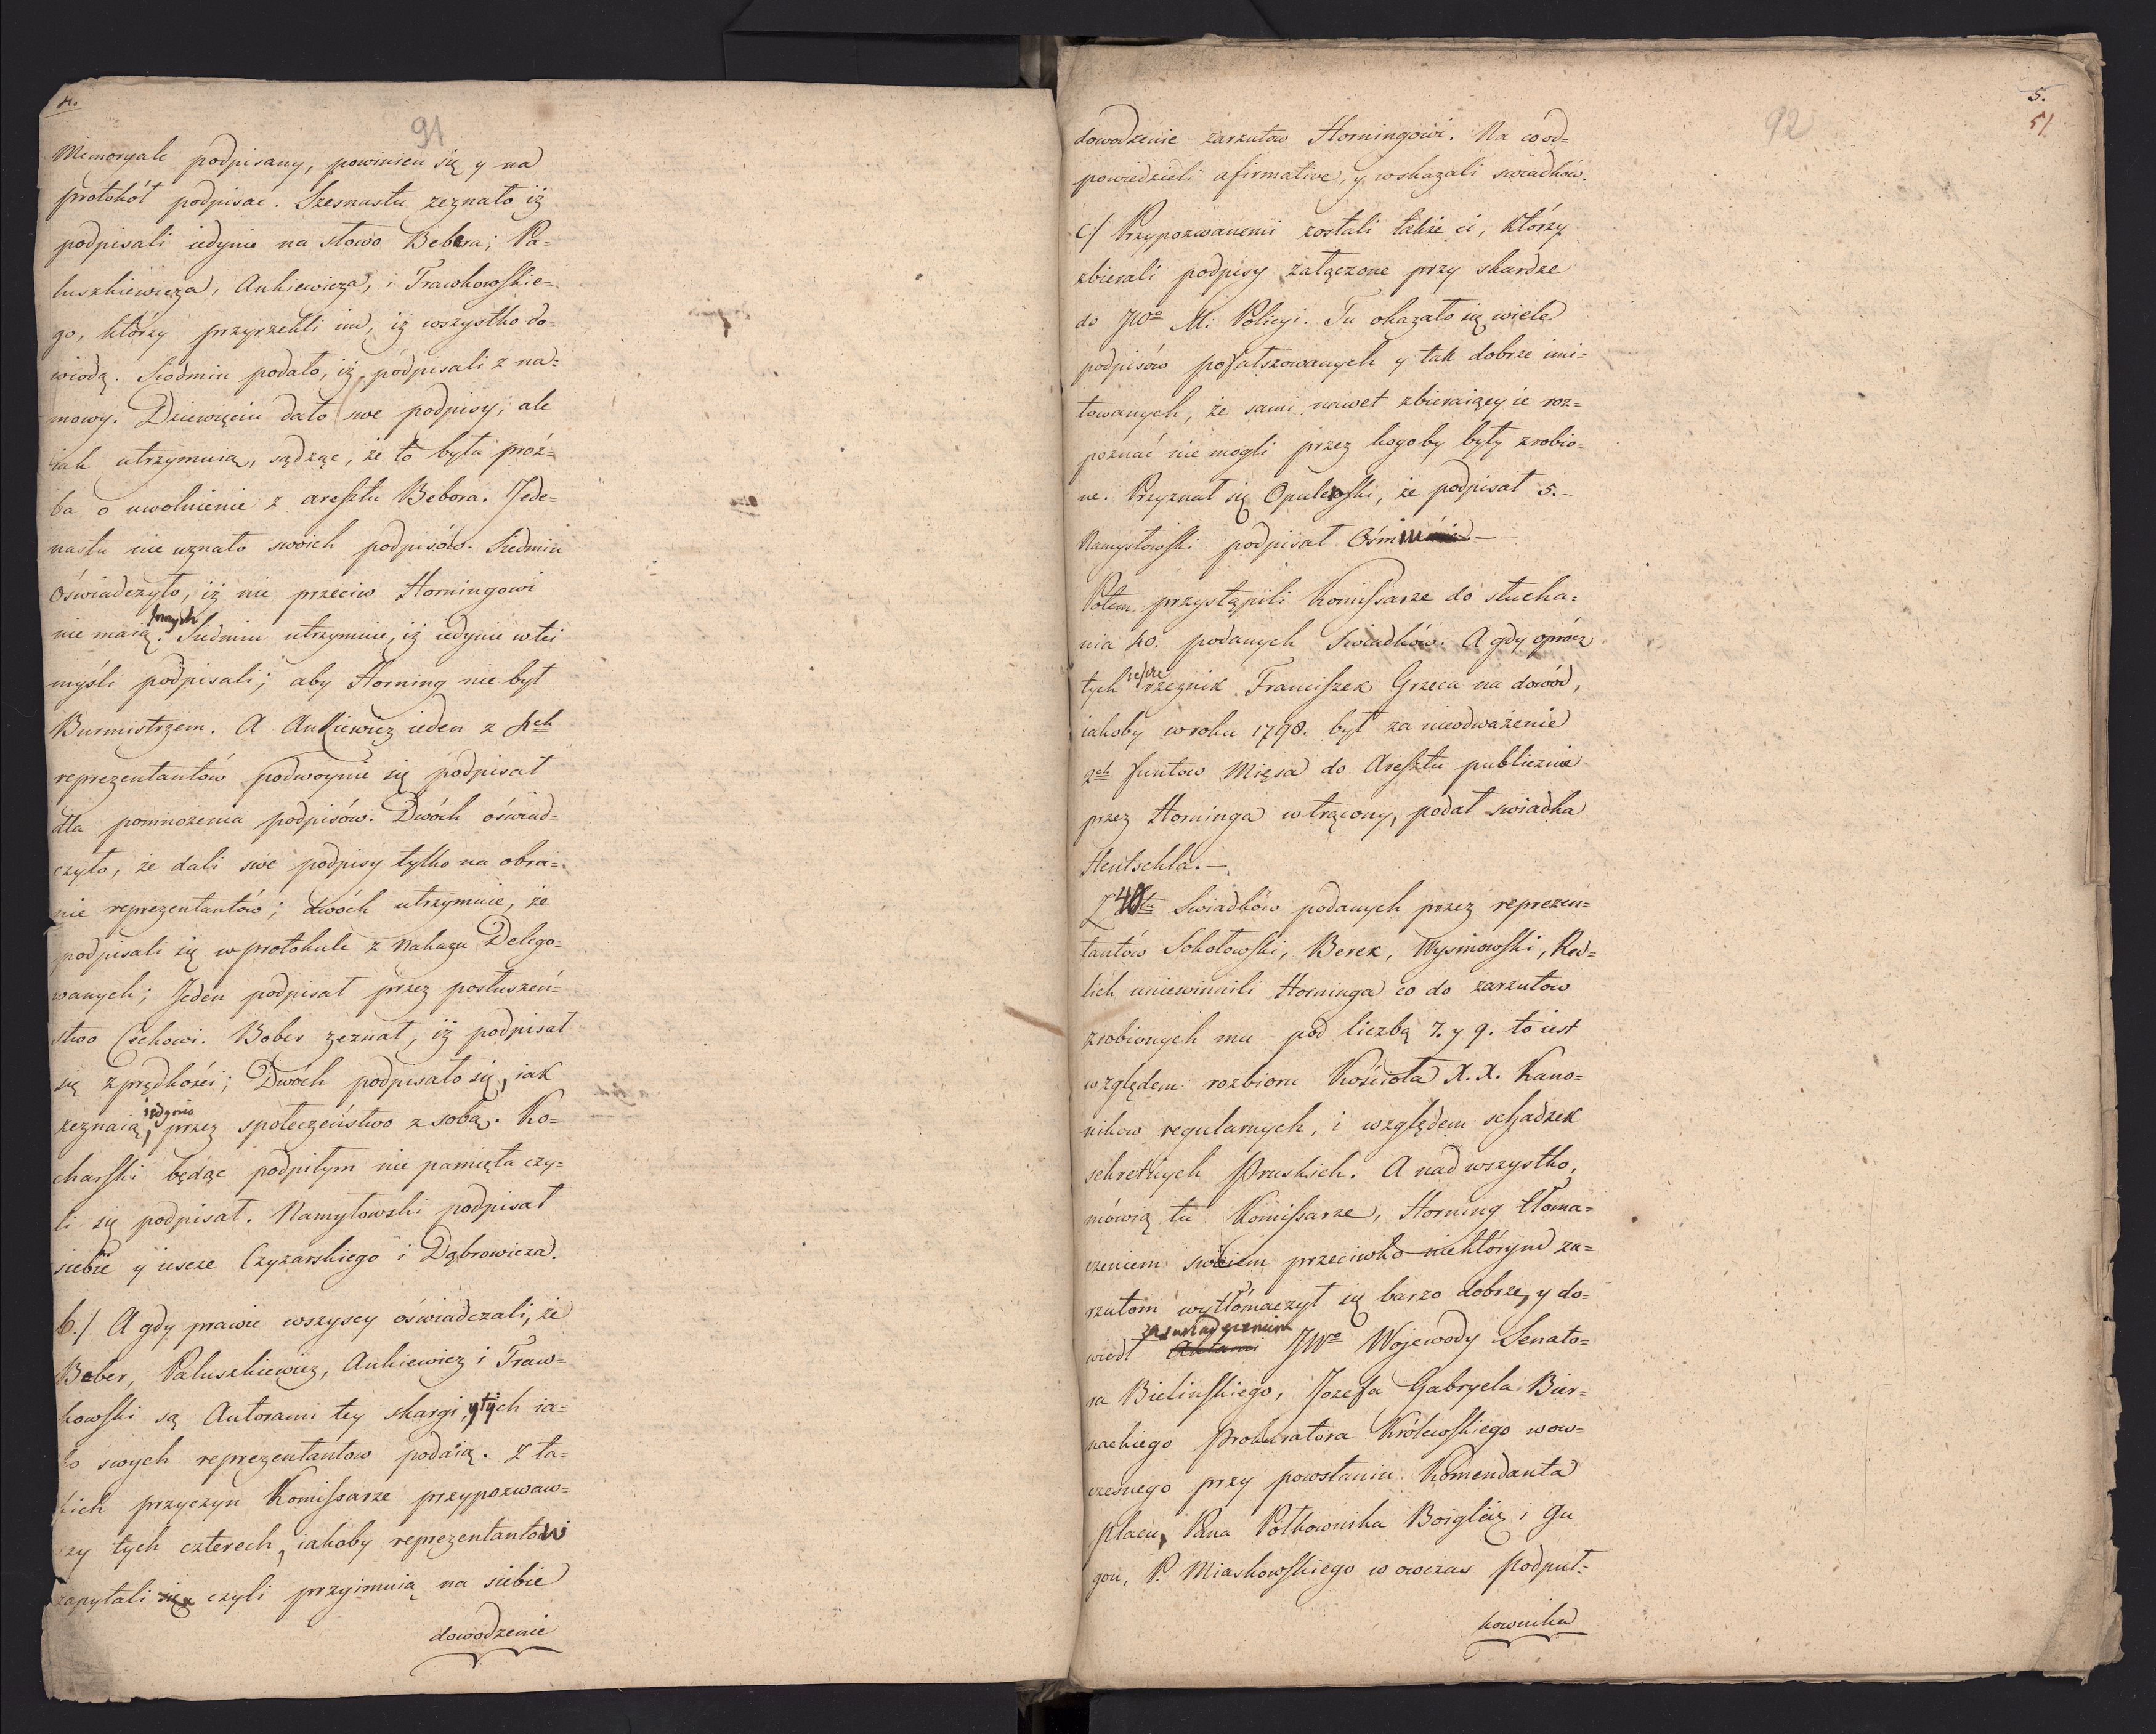 4.
91
Memoryale podpisany, powinien się y na
protokół podpisać. Szesnastu zeznało iż
podpisali iedynie na słowo Bebera, Pa=
łuszkiewicza, Ankiewicza, i Trawkowskie=
go, którzy przyrzekli im, iż wszystko do=
wiodą. Siodmiu podało, iż podpisali z na=
mowy. Dziewięciu dało swe podpisy, ale
iak utrzymuią, sądząc, że to była proź=
ba o uwolnienie z aresztu Bebora. Jede=
nastu nie uznało swoich podpisów. Siedmiu
oświadczyło, iż nic przeciw Horningowi
nie maią. Siedmiu utrzymuie, iż iedynie w tei
myśli podpisali; aby Horning nie był
Burmistrzem. A Ankiewicz ieden z 4ch
reprezentantów podwoynie się podpisał
dla pomnożenia podpisów. Dwóch oświad=
czyło, że dali swe podpisy tylko na obra=
nie reprezentantów; dwóch utrzymuie, że
podpisali się w protokule z nakazu Delego=
wanych; Jeden podpisał przez posłuszeń=
stwo Cechowi. Bober zeznał, iż podpisał
się z prędkości; Dwóch podpisało się, iak
zeznaią, iedynie przez społeczeństwo z sobą. Ko=
charski będąc podpiłym nie pamięta czy=
li się podpisał. Namysłowski podpisał
siebie y ieszcze Czyżarskiego i Dąbrowicza.
b./ A gdy prawie wszyscy oświadczali, że
Beber, Pałuszkiewicz, Ankiewicz i Traw=
kowski są Autorami tey skargi, y tych ia=
ko swych reprezentantow podaią. Z ta=
kich przyczyn Komissarze przypozwaw=
szy tych czterech, iakoby reprezentantów
zapytali się czyli przyimuią na siebie
dowodzenie
5.
51
92
dowodzenie zarzutow Horningowi. Na co od=
powiedzieli afirmative, y wskazali swiadków.
c/ Przypozwanemi zostali także ci, którzy
zbierali podpisy załączone przy skardze
do JWo M: Policyi. Tu okazało się wiele
podpisów pofałszowanych y tak dobrze imi=
towanych, że sami nawet zbieraiący ie roz=
poznać nie mogli przez kogoby były zrobio=
ne. Przyznał się Opulewski, że podpisał 5.-
Namysłowski podpisał Ośmiu
Potem przystąpili Komissarze do słucha=
nia 40. podanych Swiadków. A gdy oprócz
tych ieszcze rzeznik Franciszek Grzeca na dowód,
iakoby w roku 1798. był za nieodważenie
2ch funtow Mięsa do Aresztu publicznie
przez Horninga wtrącony, podał swiadka
Hentschla.-
Z 40tu Swiadków podanych przez reprezen=
tantów Sokołowski, Berek, Wysmowski, Red=
lich uniewinnili Horninga co do zarzutow
zrobionych mu pod liczbą 7. y 9. to iest
względem rozbioru Kościoła X.X. Kano=
nikow regularnych, i względem schadzek
sekretnych Pruskich. A nad wszystko,
mówią tu Komissarze, Horning tłoma=
czeniem swoiem przeciwko niektórym za=
rzutom wytłómaczył się barzo dobrze, y do=
wiedł zaswiadczeniem JWo Wojewody Senato=
ra Bielinskiego, Jozefa Gabryela Bier=
nackiego Prokuratora Królewskiego wow=
czesnego przy powstaniu Komendanta
placu, Pana Połkownika Boiglie i Gu
gou, P. Miaskowskiego w owczas Podpuł=
kownika